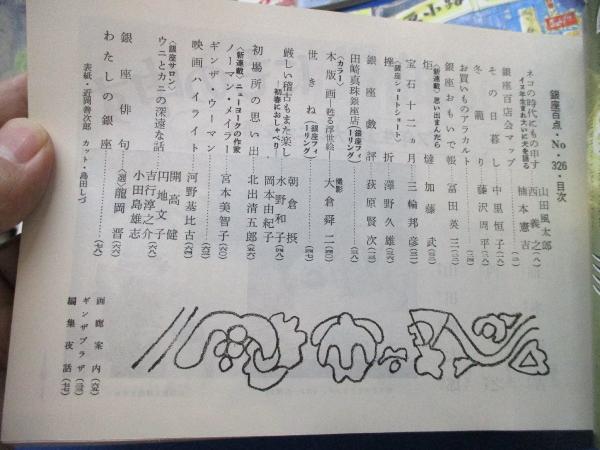 銀座百点・No・326・目次
ネコの時代にもの申す
イヌ年生まれ大いに犬を語る
山田風太郎
西義之
楠本憲吉
銀座百店会マップ
その日暮し 中里恒子
冬籠り 藤沢周平
お買いものアラカルト
銀座おもいで帳 冨田英三
〈新連載〉思い出まんだら
炬燵 加藤武
宝石十二ヵ月 三輪邦彦
〈銀座ショートショート〉
挫折 澤野久雄
銀座戯評 荻原賢次
田崎真珠銀座店(銀座フィーリング)
〈カラー〉
木版画―甦る浮世絵― 撮影 大倉舜二
せきね(銀座フィーリング)
厳しい稽古もまた楽し
―初春におしゃべり―
朝倉摂
水野和子
岡本由紀子
初場所の思い出 北出清五郎
〈新連載〉ニューヨークの作家
ノーマン・メイラー 宮本美智子
ギンザ・ウーマン
映画ハイライト 河野基比古
〈銀座サロン〉
ウニとカニの深遠な話
開高健
円地文子
吉行淳之介
小田島雄志
銀座俳句 〈選〉龍岡晋
わたしの銀座
表紙・近岡善次郎 カット・島田しづ
画廊案内
ギンザプラザ
編集夜話